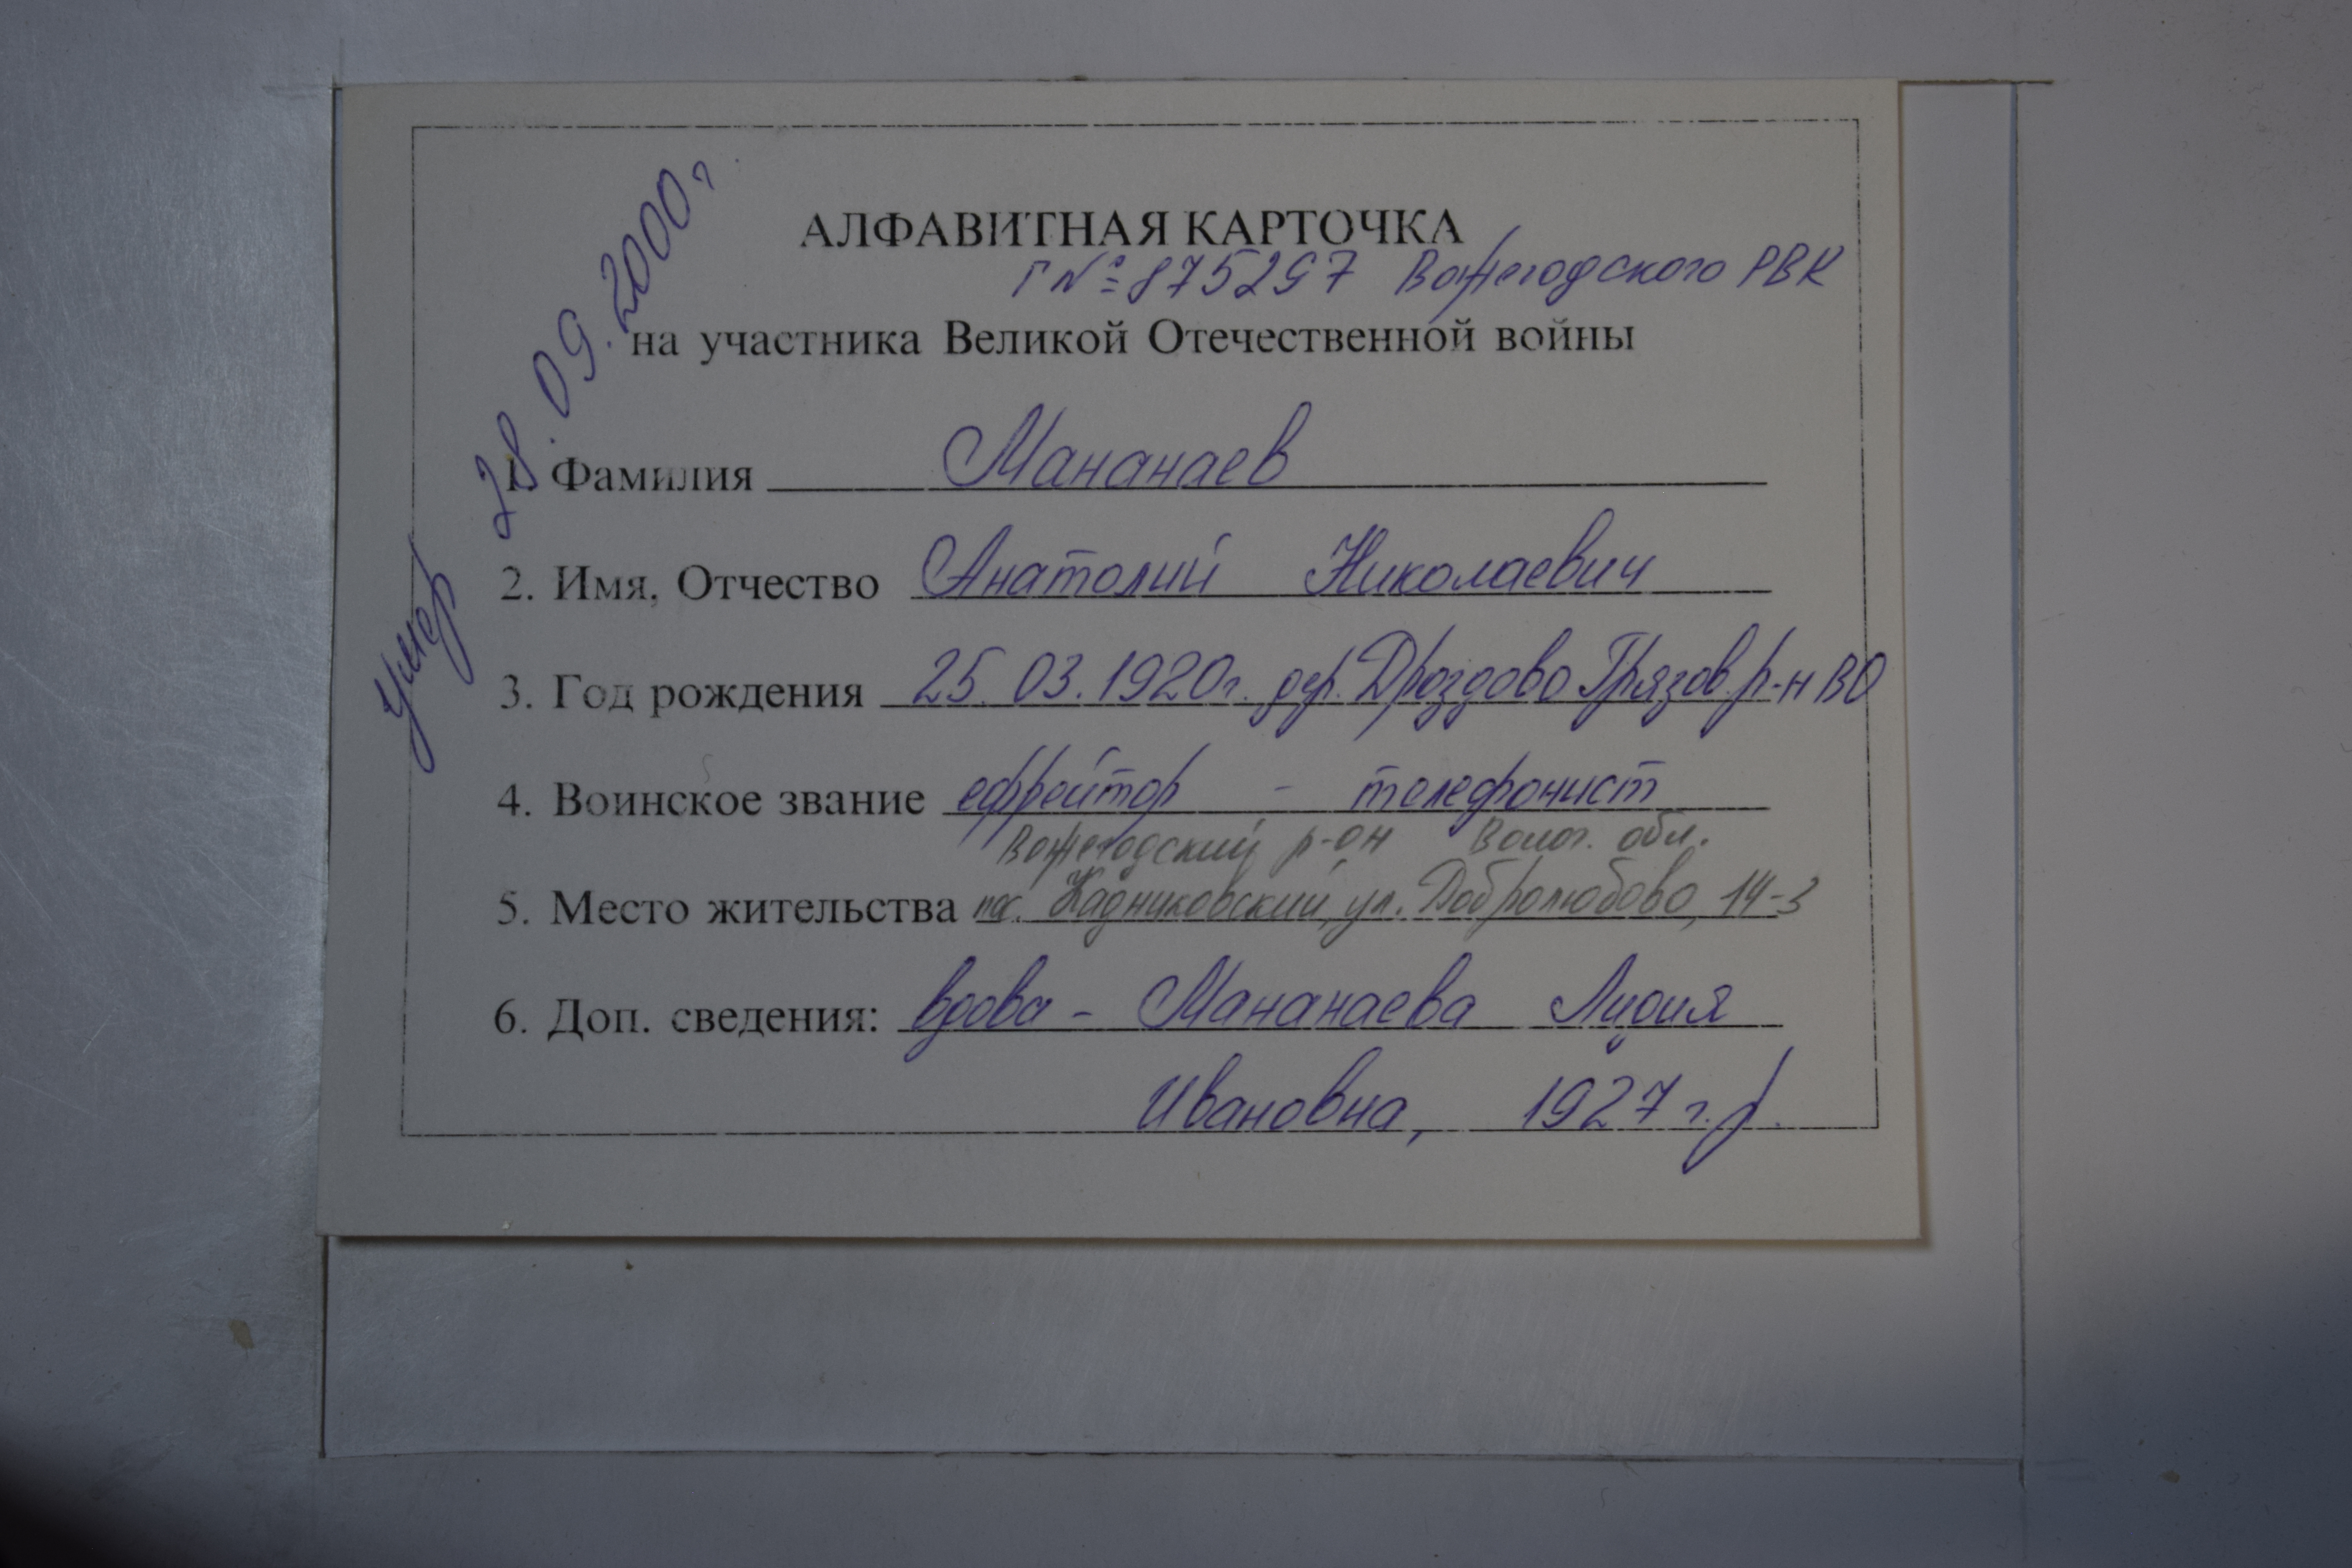 Умер 28.09.2000г
АЛФАВИТНАЯ КАРТОЧКА
Г №875297 Вожегодского РВК
на участника Великой Отечественной войны
1. Фамилия Мананаев
2. Имя, Отчество Анатолий Николаевич
3. Год рождения 25.03.1920г. дер. Дроздово Грязов. р-н ВО
4. Воинское звание ефрейтор - телефонист
Вожегодский р-он Волог. обл.
5. Место жительства пос. Кадниковский, ул. Добролюбово, 14-3
6. Доп. сведения: вдова - Мананаева Лидия
Ивановна, 1927 г.р.